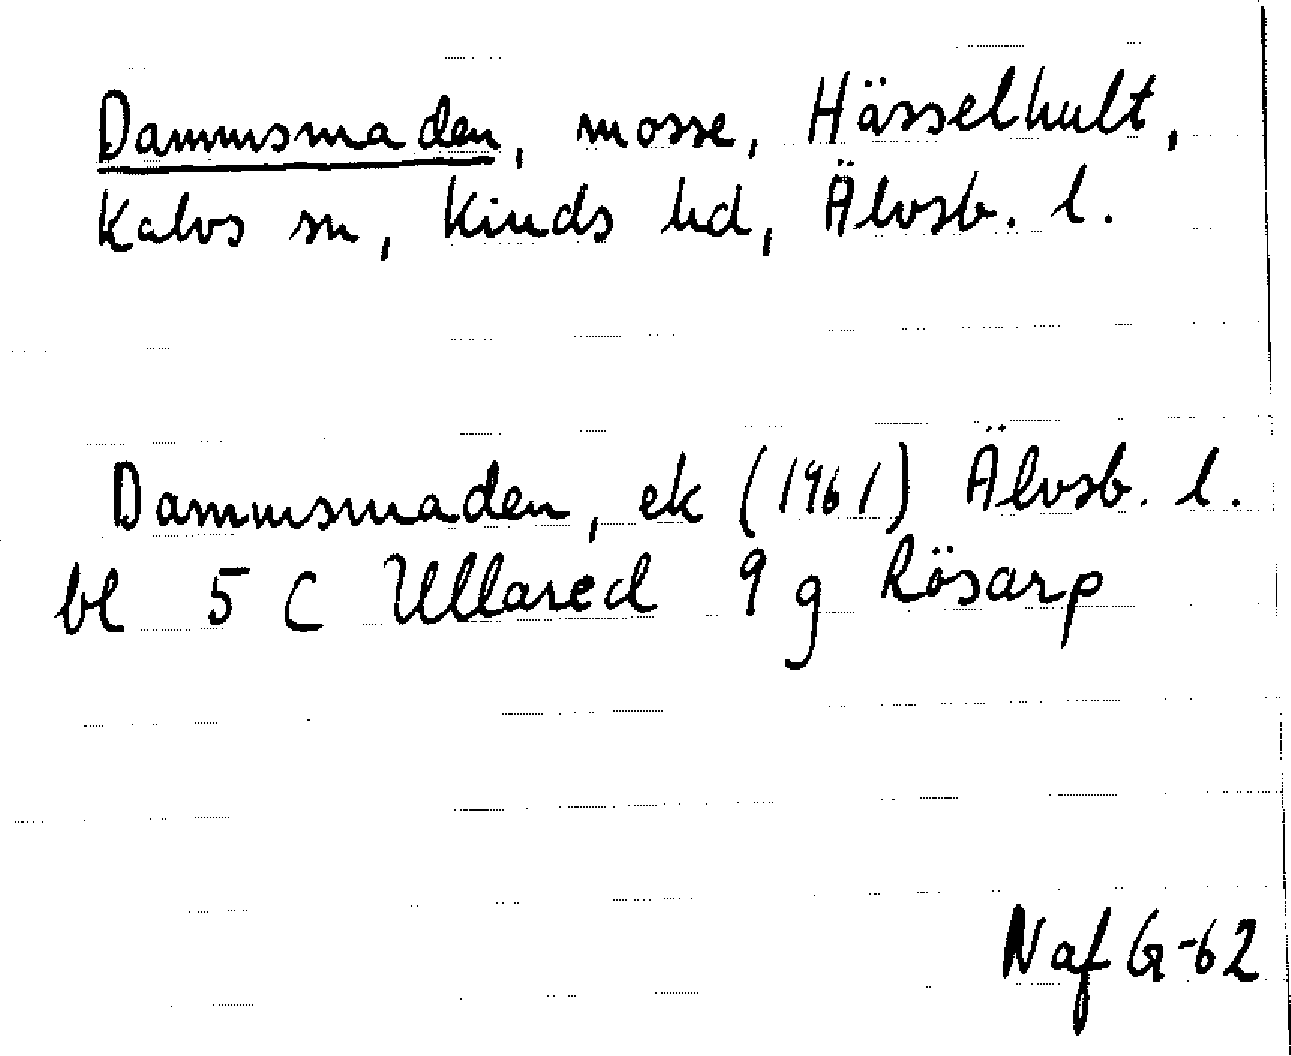 Dammsmaden, mosse, Hässelhult,
Kalvs sn, Kinds hd, Älvsb. l.
Dammsmaden, ek (1961) Älvsb. l.
bl 5 C Ullared 9 g Rösarp
NafG-62